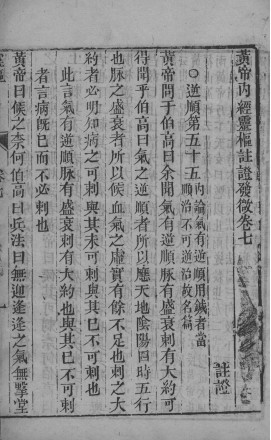 黃帝內經靈樞註證發微卷七
註證
○逆順第五十五
內論氣有逆順用鍼者當
順治不可逆治故名篇
黃帝問于伯高曰余聞氣有逆順脉有盛衰刺有大約可
得聞乎伯高曰氣之逆順者所以應天地陰陽四時五行
也脉之盛衰者所以候血氣之虛實有餘不足也刺之大
約者必明知病之可刺與其未可刺與其已不可刺也
此言氣有逆順脉有盛衰刺有大約也與其已不可刺
者言病旣已而不必刺也
黃帝曰候之奈何伯高曰兵法曰無迎逢逢之氣無擊堂